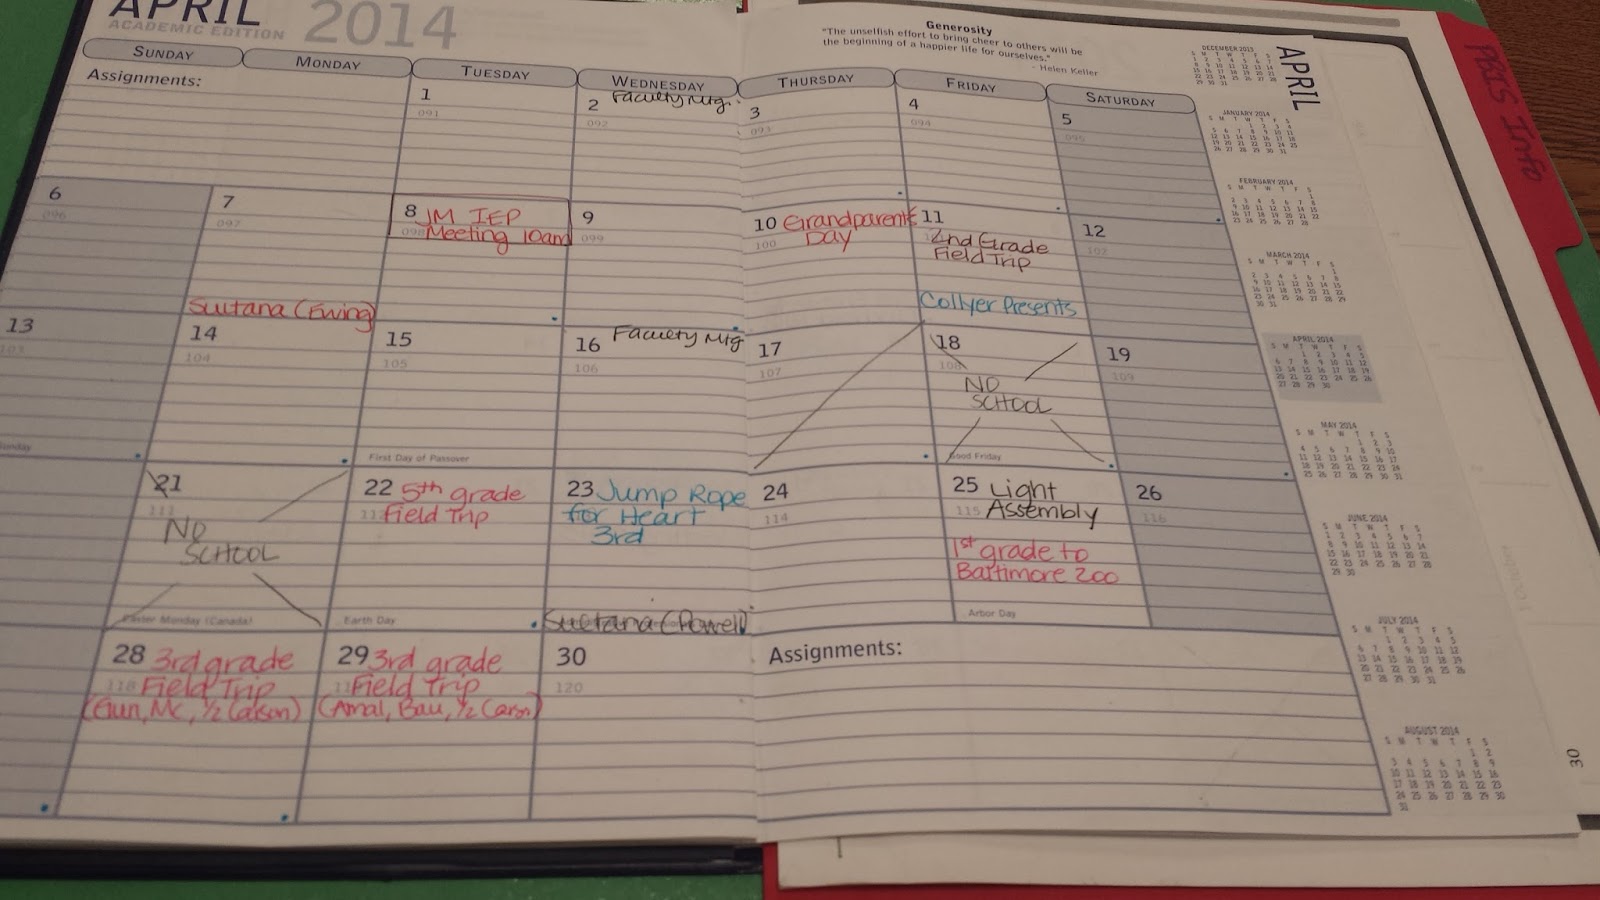 APRIL 2014
ACADEMIC EDITION
Generosity
"The unselfish effort to bring cheer to others will be
the beginning of a happier life for ourselves."
- Helen Keller
SUNDAY MONDAY TUESDAY WEDNESDAY THURSDAY FRIDAY SATURDAY
Assignments:
1
091
2 Faculty Mtg.
092
3
093
4
094
5
095
6
096
7
097
Sultana (Ewing)
8 JM IEP
098 Meeting 10am
9
099
10 Grandparents
100 Day
11
2nd Grade
Field Trip
Collyer Presents
12
102
13
103
14
104
15
105
First Day of Passover
16 Faculty Mtg
106
17
107
18
108
NO
SCHOOL
Good Friday
19
109
21
111
NO
SCHOOL
Easter Monday (Canada)
22 5th grade
Field Trip
Earth Day
23 Jump Rope
for Heart
3rd
Sultana (Powell)
24
114
25 Light
115 Assembly
1st grade to
Baltimore Zoo
Arbor Day
26
116
28 3rd grade
118 Field Trip
29 3rd grade
Field Trip
30
120
Assignments:
APRIL
DECEMBER 2013
JANUARY 2014
FEBRUARY 2014
MARCH 2014
APRIL 2014
MAY 2014
JUNE 2014
JULY 2014
AUGUST 2014
30